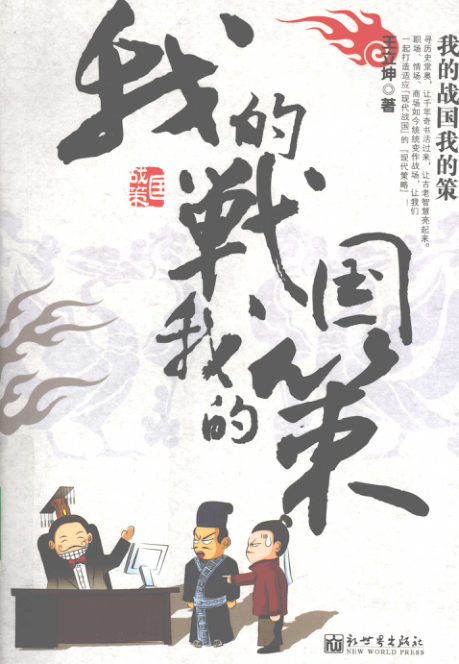 我的战国我的策
寻历史堂奥，让千年奇书活过来，让古老智慧亮起来。
职场、情场、商场如今统统变作战场，让我们
一起打造适应「现代战国」的「现代策略」！
王立坤◎著
我的
戰国
我的
策
国
战策
新世界出版社
NEW WORLD PRESS